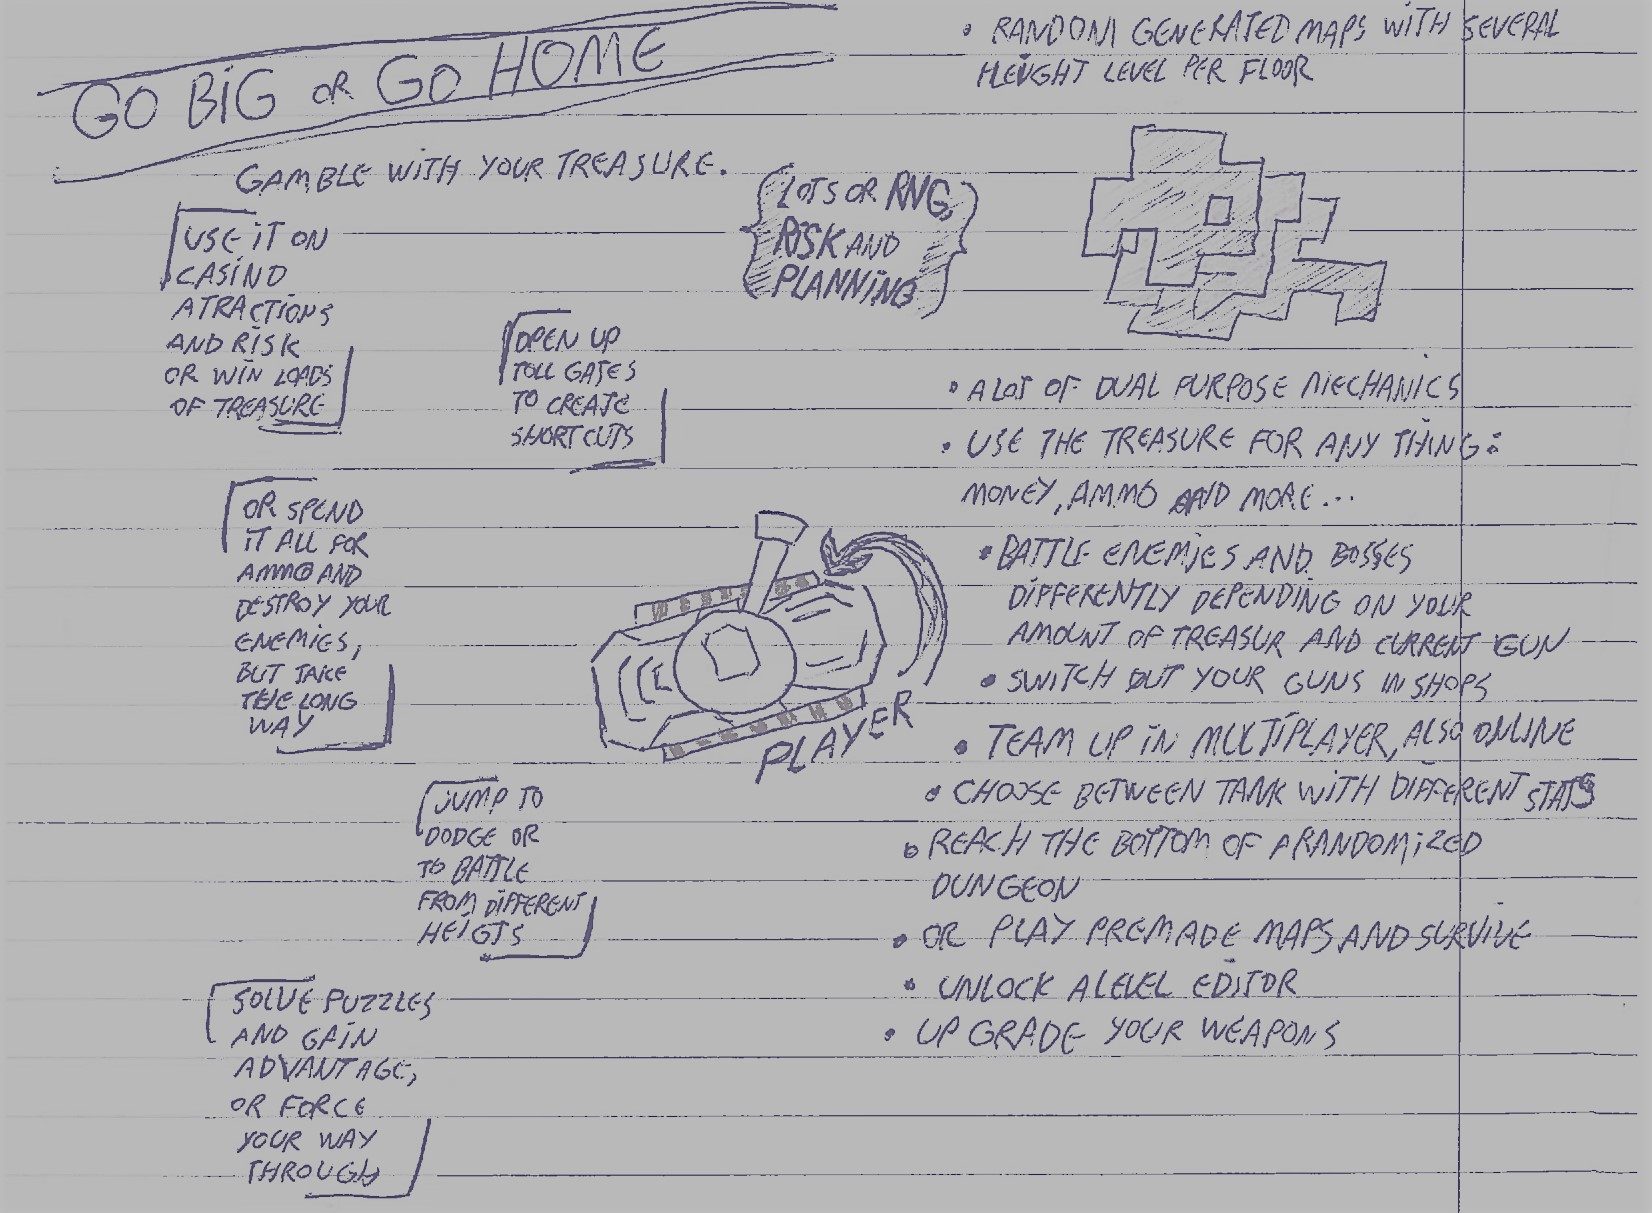 GO BIG OR GO HOME
GAMBLE WITH YOUR TREASURE.
USE IT ON
CASINO
ATRACTIONS
AND RISK
OR WIN LOADS
OF TREASURE
OPEN UP
TOLL GATES
TO CREATE
SHORTCUTS
OR SPEND
IT ALL FOR
AMMO AND
DESTROY YOUR
ENEMIES,
BUT TAKE
THE LONG
WAY
JUMP TO
DODGE OR
TO BATTLE
FROM DIFFERENT
HEIGTS
SOLVE PUZZLES
AND GAIN
ADVANTAGE,
OR FORCE
YOUR WAY
THROUGH
LOTS OR RNG,
RISK AND
PLANNING
PLAYER
• RANDOM GENERATED MAPS WITH SEVERAL
HEIGHT LEVEL PER FLOOR
• A LOT OF DUAL PURPOSE MECHANICS
• USE THE TREASURE FOR ANY THING:
MONEY, AMMO AND MORE...
• BATTLE ENEMIES AND BOSSES
DIFFERENTLY DEPENDING ON YOUR
AMOUNT OF TREASUR AND CURRENT GUN
• SWITCH OUT YOUR GUNS IN SHOPS
• TEAM UP IN MULTIPLAYER, ALSO ONLINE
• CHOOSE BETWEEN TANK WITH DIFFERENT STATS
• REACH THE BOTTOM OF A RANDOMIZED
DUNGEON
• OR PLAY PREMADE MAPS AND SURVIVE
• UNLOCK A LEVEL EDITOR
• UPGRADE YOUR WEAPONS